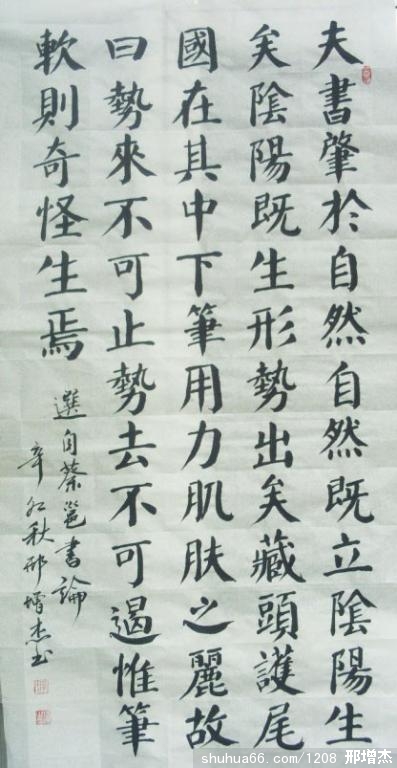 夫書肇於自然自然既立陰陽生
矣陰陽既生形勢出矣藏頭護尾
國在其中下筆用力肌肤之麗故
曰勢來不可止勢去不可遏惟筆
軟則奇怪生焉
選自蔡邕書論
辛卯秋邢增杰书
shuhua66.com/1208 邢增杰